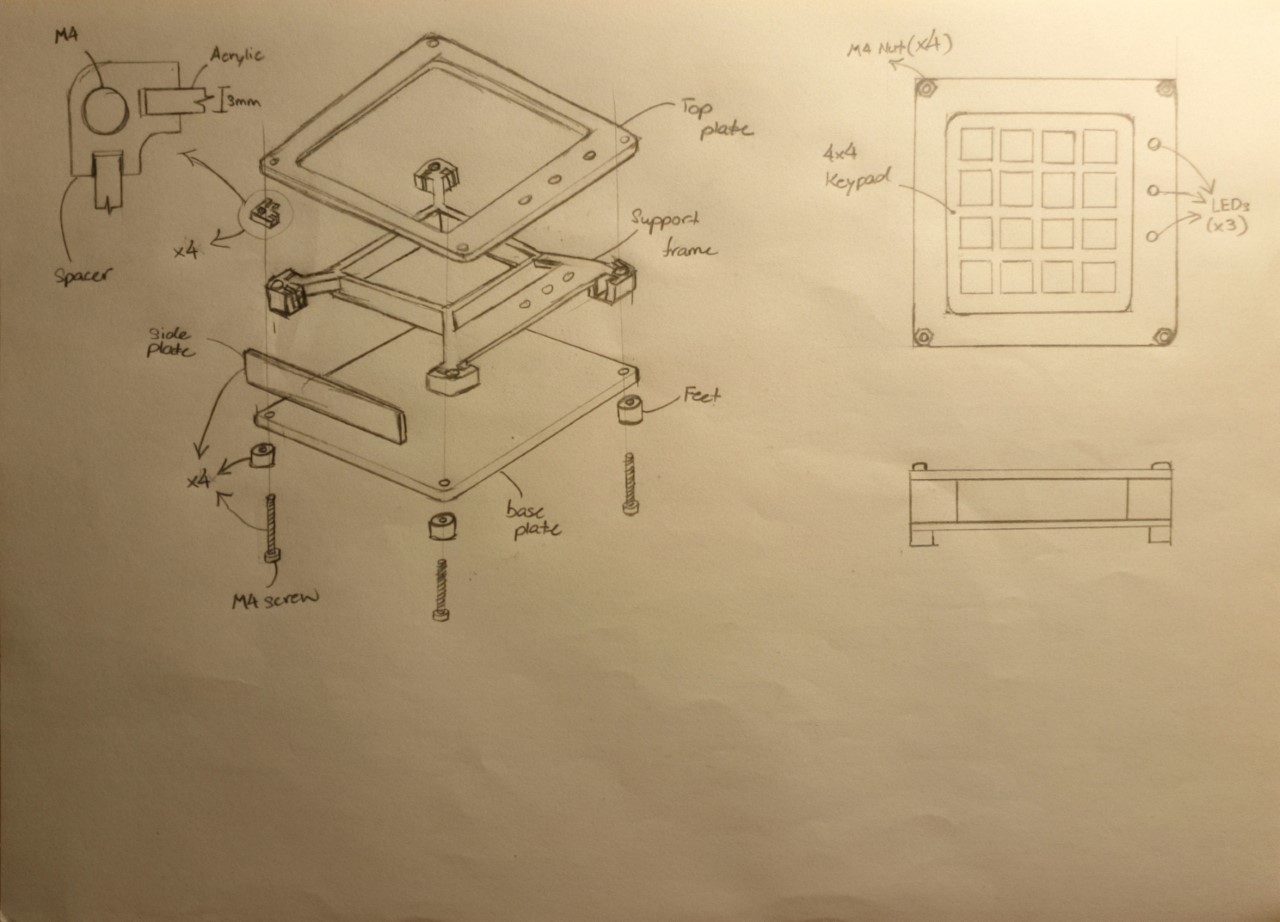 M4
Acrylic
3mm
Spacer
x4
Top
plate
Support
frame
side
plate
Feet
x4
base
plate
M4 screw
M4 Nut (x4)
4x4
Keypad
LEDs
(x3)